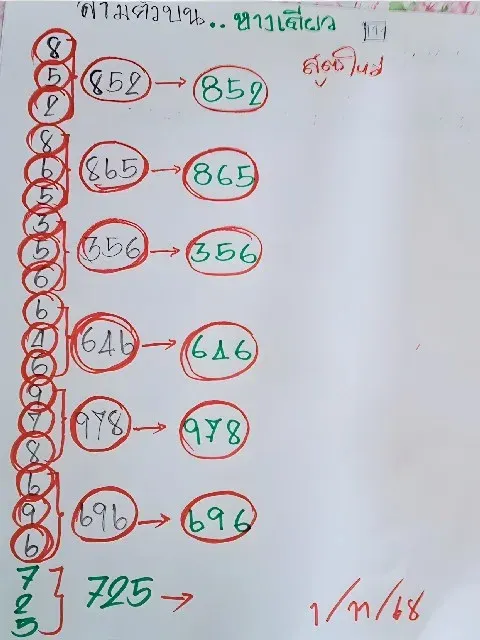 สามตัวบน..ทางเดียว
สูตรใหม่
8
5
2
852 → 852
8
6
5
865 → 865
3
5
6
356 → 356
6
4
6
646 → 646
9
7
8
978 → 978
6
9
6
696 → 696
7
2
5
725 →
1/ก/68